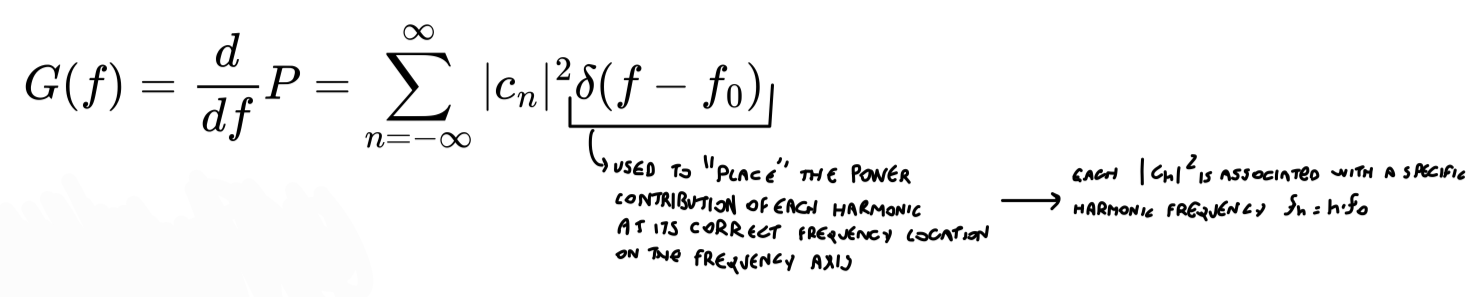 G(f) = \frac{d}{df} P = \sum_{n=-\infty}^{\infty} |c_n|^2 \delta(f - f_0)
USED TO "PLACE" THE POWER
CONTRIBUTION OF EACH HARMONIC
AT ITS CORRECT FREQUENCY LOCATION
ON THE FREQUENCY AXIS
EACH |Cn|² IS ASSOCIATED WITH A SPECIFIC
HARMONIC FREQUENCY fn = n·f0